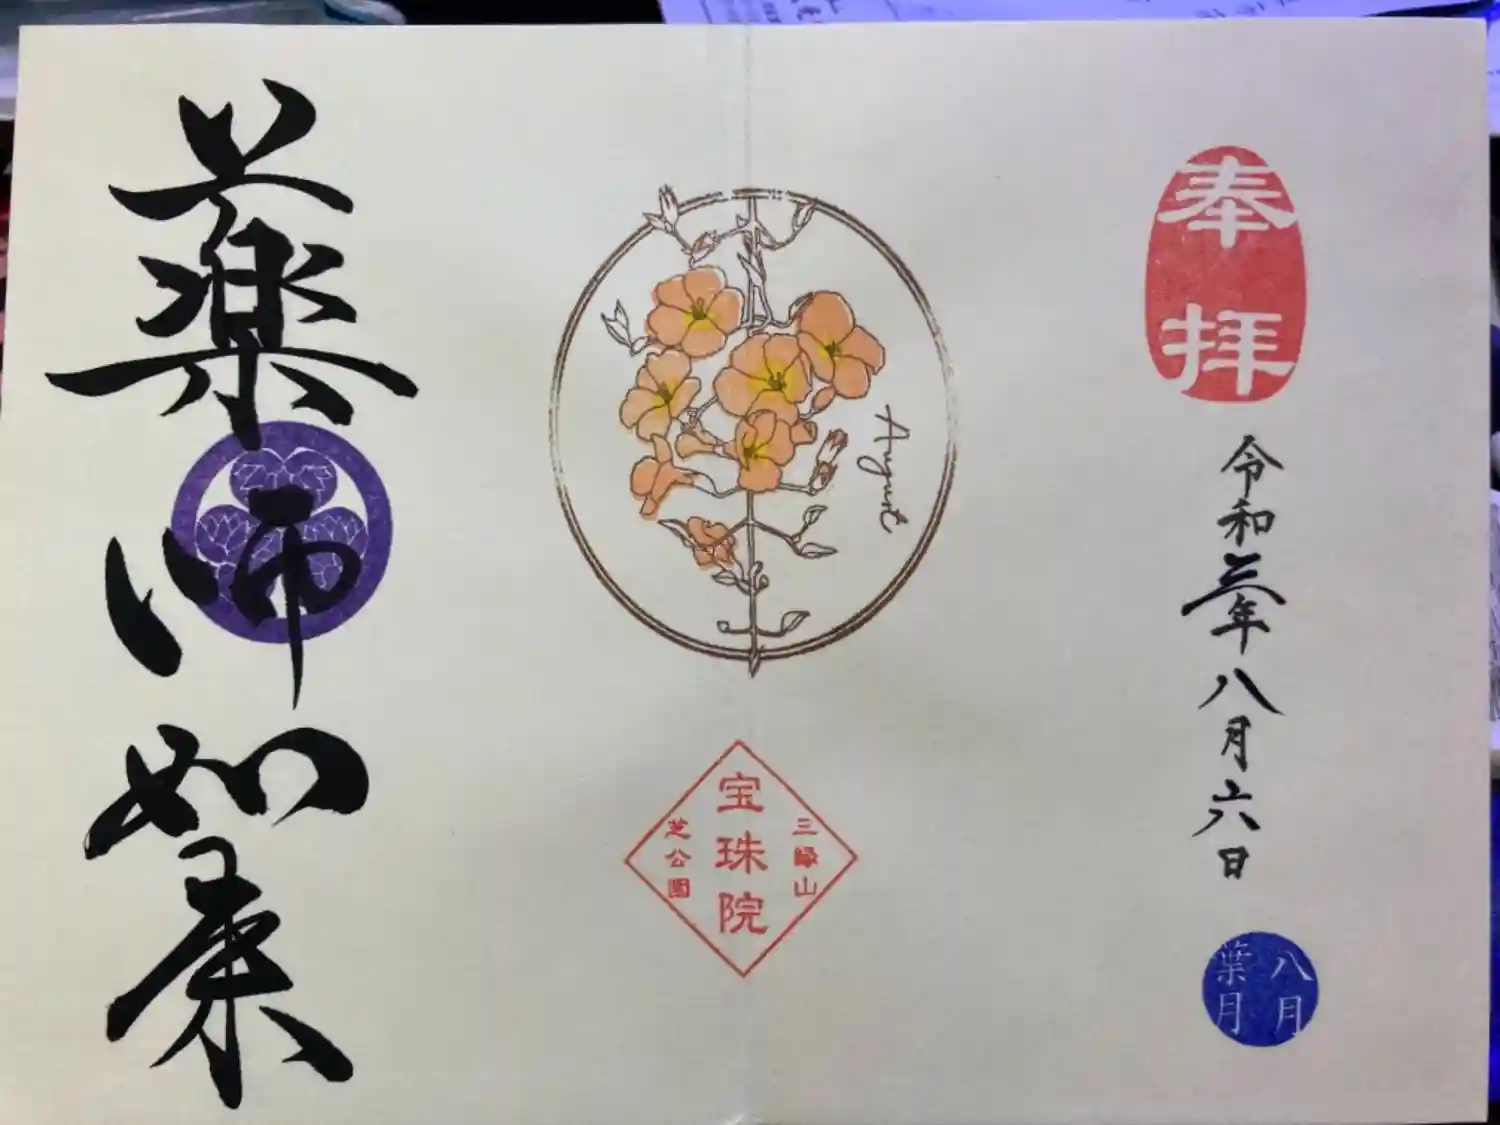 奉拝
令和三年八月六日
八月
葉月
August
三縁山
宝珠院
芝公園
薬師如来